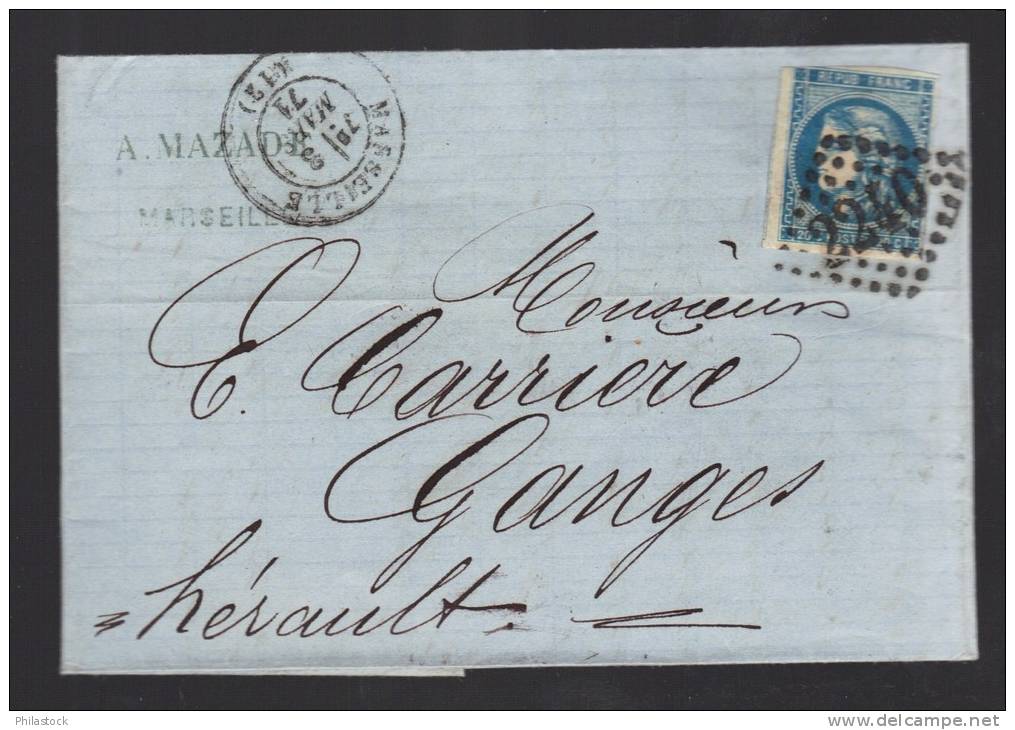 A. MAZADE
MARSEILLE
MARSEILLE
(12)
23
MARS
71
REPUB FRANC
20 POSTES 20 C
2240
Monsieur
E. Carriere
Ganges
hérault.
Philastock
www.delcampe.net